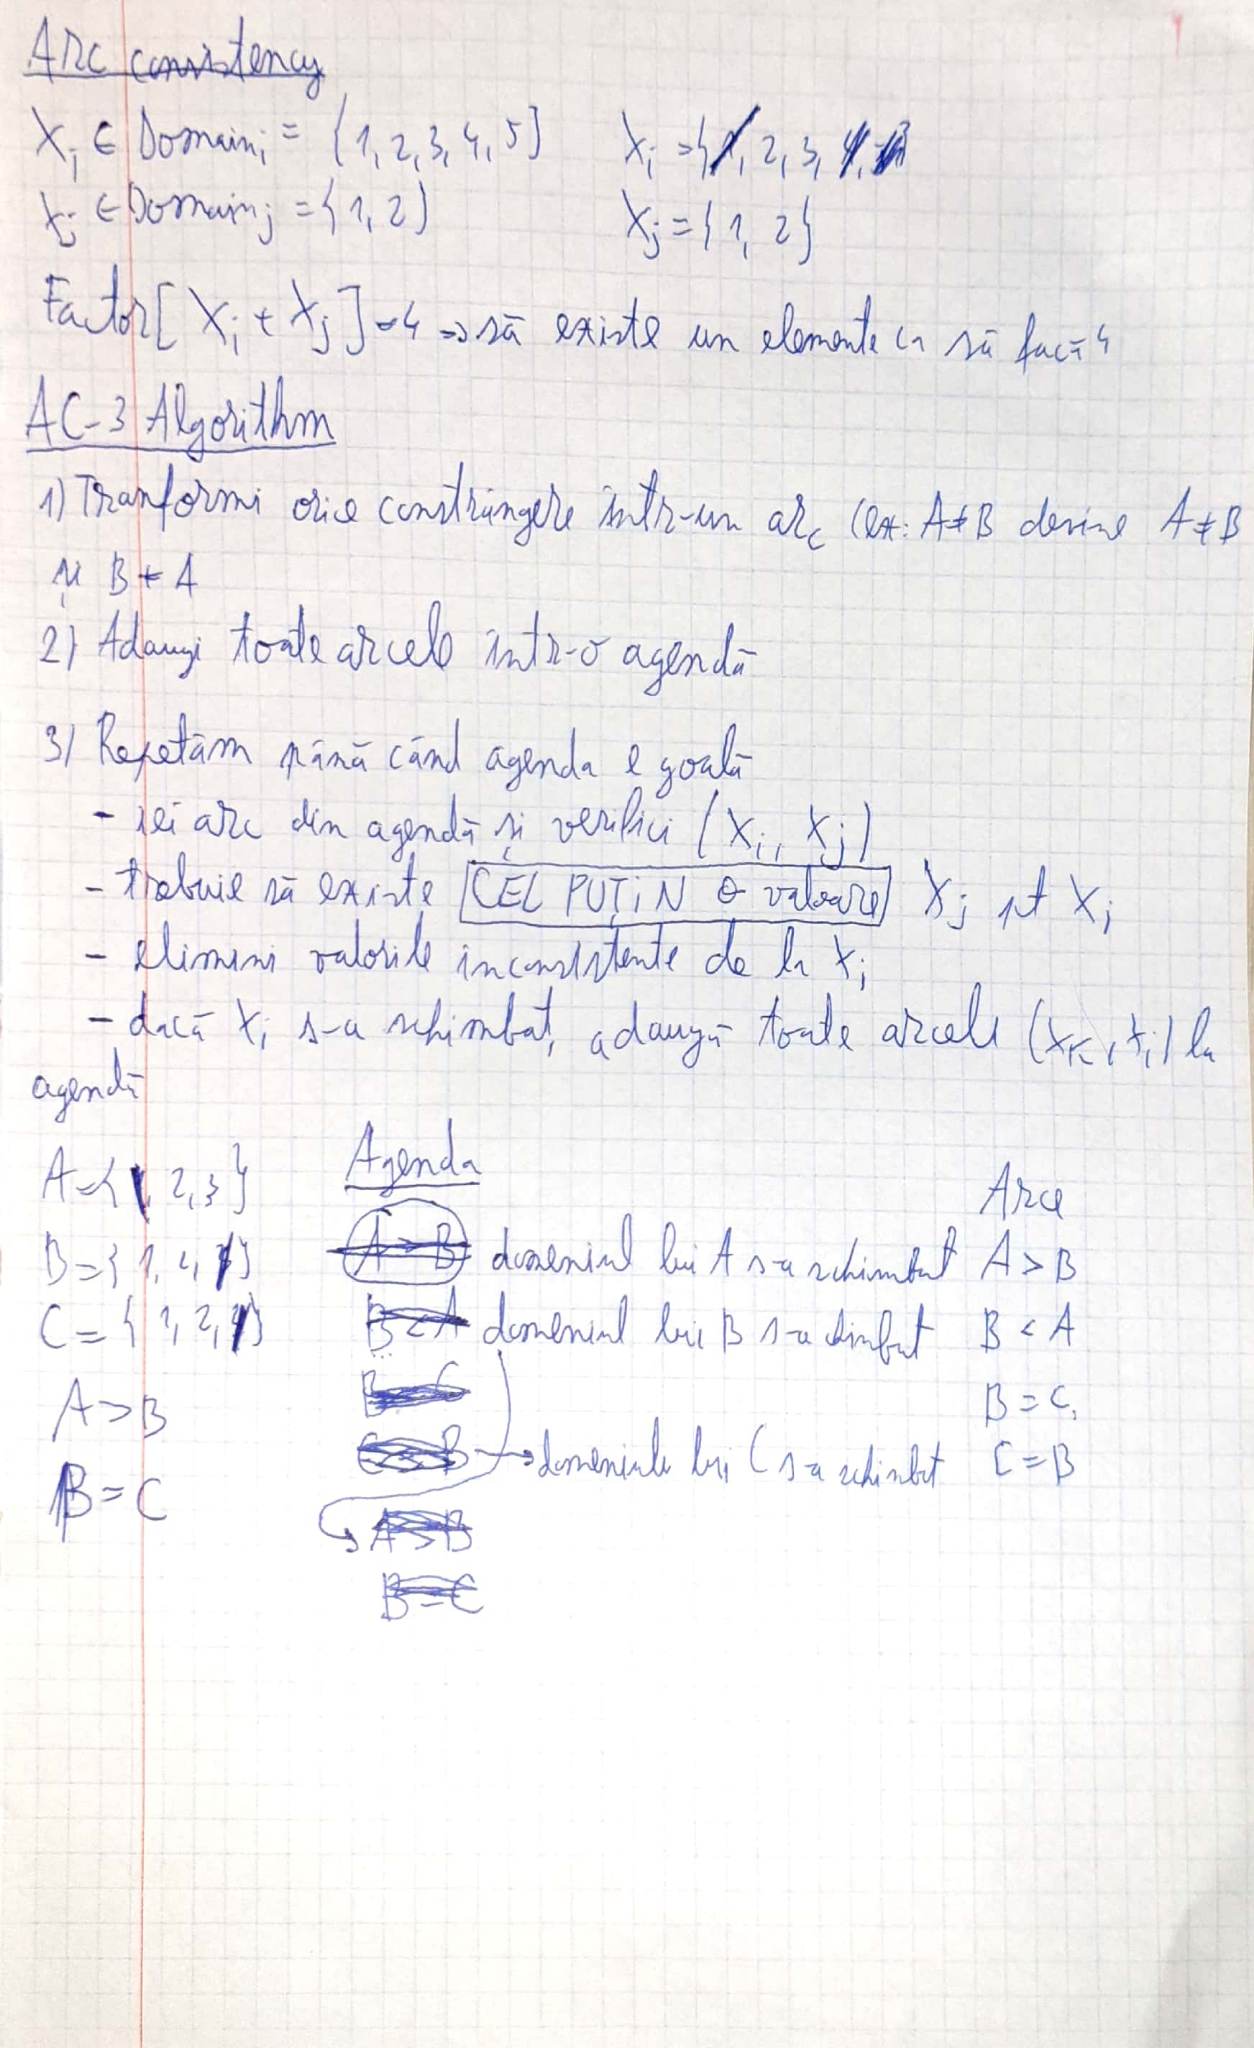 Arc consistency
Xi ∈ Domaini = {1, 2, 3, 4, 5} Xi = {1, 2, 3, 4, 5}
Xj ∈ Domainj = {1, 2} Xj = {1, 2}
Factor[Xi + Xj] = 4 => să existe un elemente ca să facă 4
AC-3 Algorithm
1) Tranformi orice constrângere într-un arc (ex: A≠B devine A≠B
și B ≠ A
2) Adaugi toate arcele într-o agendă
3) Repetăm până când agenda e goală
- iei arc din agendă și verifici (Xi, Xj)
- trebuie să existe CEL PUȚIN O valoare Xj pt Xi
- elimini valorile inconsistente de la Xi
- dacă Xi s-a schimbat, adaugă toate arcele (Xk, Xi) la
agendă
A={1, 2, 3} Agenda Arce
B={1, 4, } A > B domeniul lui A s-a schimbat A > B
C = {1, 2, } B < A domeniul lui B s-a schimbat B < A
A > B B = C B = C
B = C C = B domeniule lui C s-a schimbat C = B
A > B
B = C